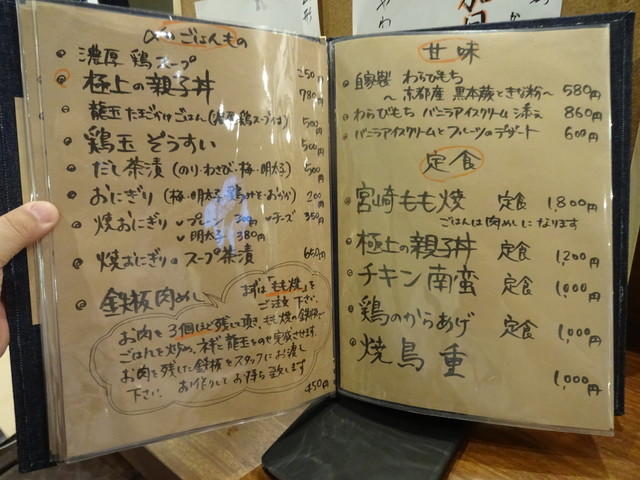 ごはんもの
濃厚 鶏スープ 250円
極上の親子丼 780円
龍玉 たまごかけごはん (濃厚鶏スープ付) 500円
鶏玉 ぞうすい 500円
だし茶漬 (のり・わさび・梅・明太子) 500円
おにぎり (梅・明太子・鶏みそ・おかか) 200円
焼おにぎり プレーン 200円 チーズ 350円
明太子 380円
焼おにぎりのスープ茶漬 650円
鉄板肉めし
まずは「もも焼」を
ご注文下さい。
お肉を3個ほど残して頂き、もも焼の鉄板で
ごはんを炒め、ネギと龍玉をのせ完成させます。
お肉を残した鉄板をスタッフにお渡し
下さい。 お作りしてお持ち致します
450円
甘味
自家製 わらびもち
～京都産 黒本蕨ときな粉～ 580円
わらびもち バニラアイスクリーム 添え 860円
バニラアイスクリームとフルーツのデザート 600円
定食
宮崎もも焼 定食 1,800円
ごはんは肉めしになります
極上の親子丼 定食 1,200円
チキン南蛮 定食 1,000円
鶏のからあげ 定食 1,000円
焼鳥重 1,000円